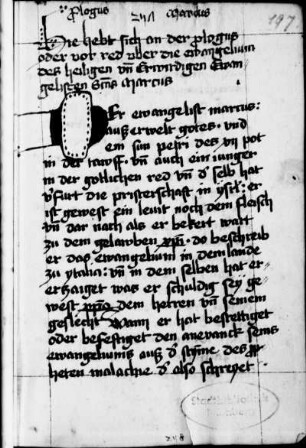 Prologus Marcus
197
Hie hebt sich an der prologus
oder vor red vber die ewangelium
des heiligen vn̄ Erwirdigen Ewan
gelisten Marcus
Er ewangelist marcus:
außerwelt gotes. vnd
ein sun petri des vn̄ pot
in der tawff. vn̄ auch ein iunger
in der gotlichen red vn̄ d' selb hat
v'furt die pristerschaft in ysrl: er
ist gewest ein leuit noch dem fleisch
vn̄ dar nach als er bekert wart
zu dem gelawben do beschreib
er das ewangelium in dem lande
zu ytalia: vn̄ in dem selben hat er
erzaiget was er schuldig sey ge
west dem herren vn̄ seinem
geslecht Wann er hat bestettiget
oder befestiget den anevanck seins
ewangeliums auß d' stymē des
heten malachie d' also schreyet